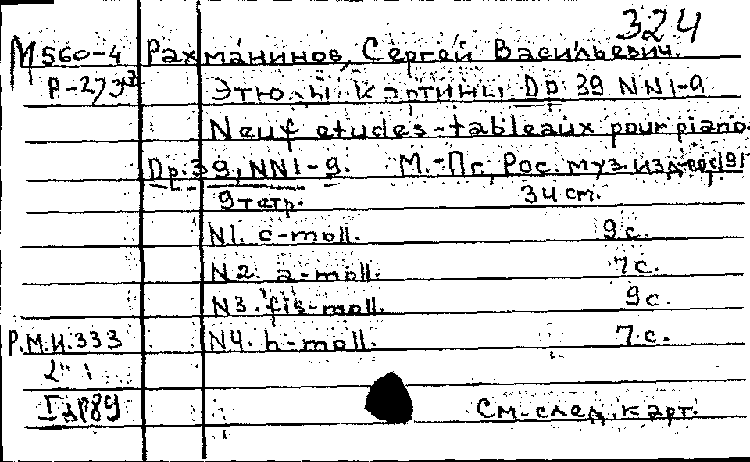 324
М560-4 Рахманинов, Сергей Васильевич.
Р-273
Этюды-картины Op. 39 NN1-9
Neuf etudes-tableaux pour piano.
Op. 39, NN1-9. М.-Пг, Рос. муз. изд-во
9 тетр. 34 ст.
N1. c-moll. 9 с.
N2. a-moll. 7 с.
N3. fis-moll. 9 с.
Р.М.И.333 N4. h-moll. 7 с.
См. след. карт.